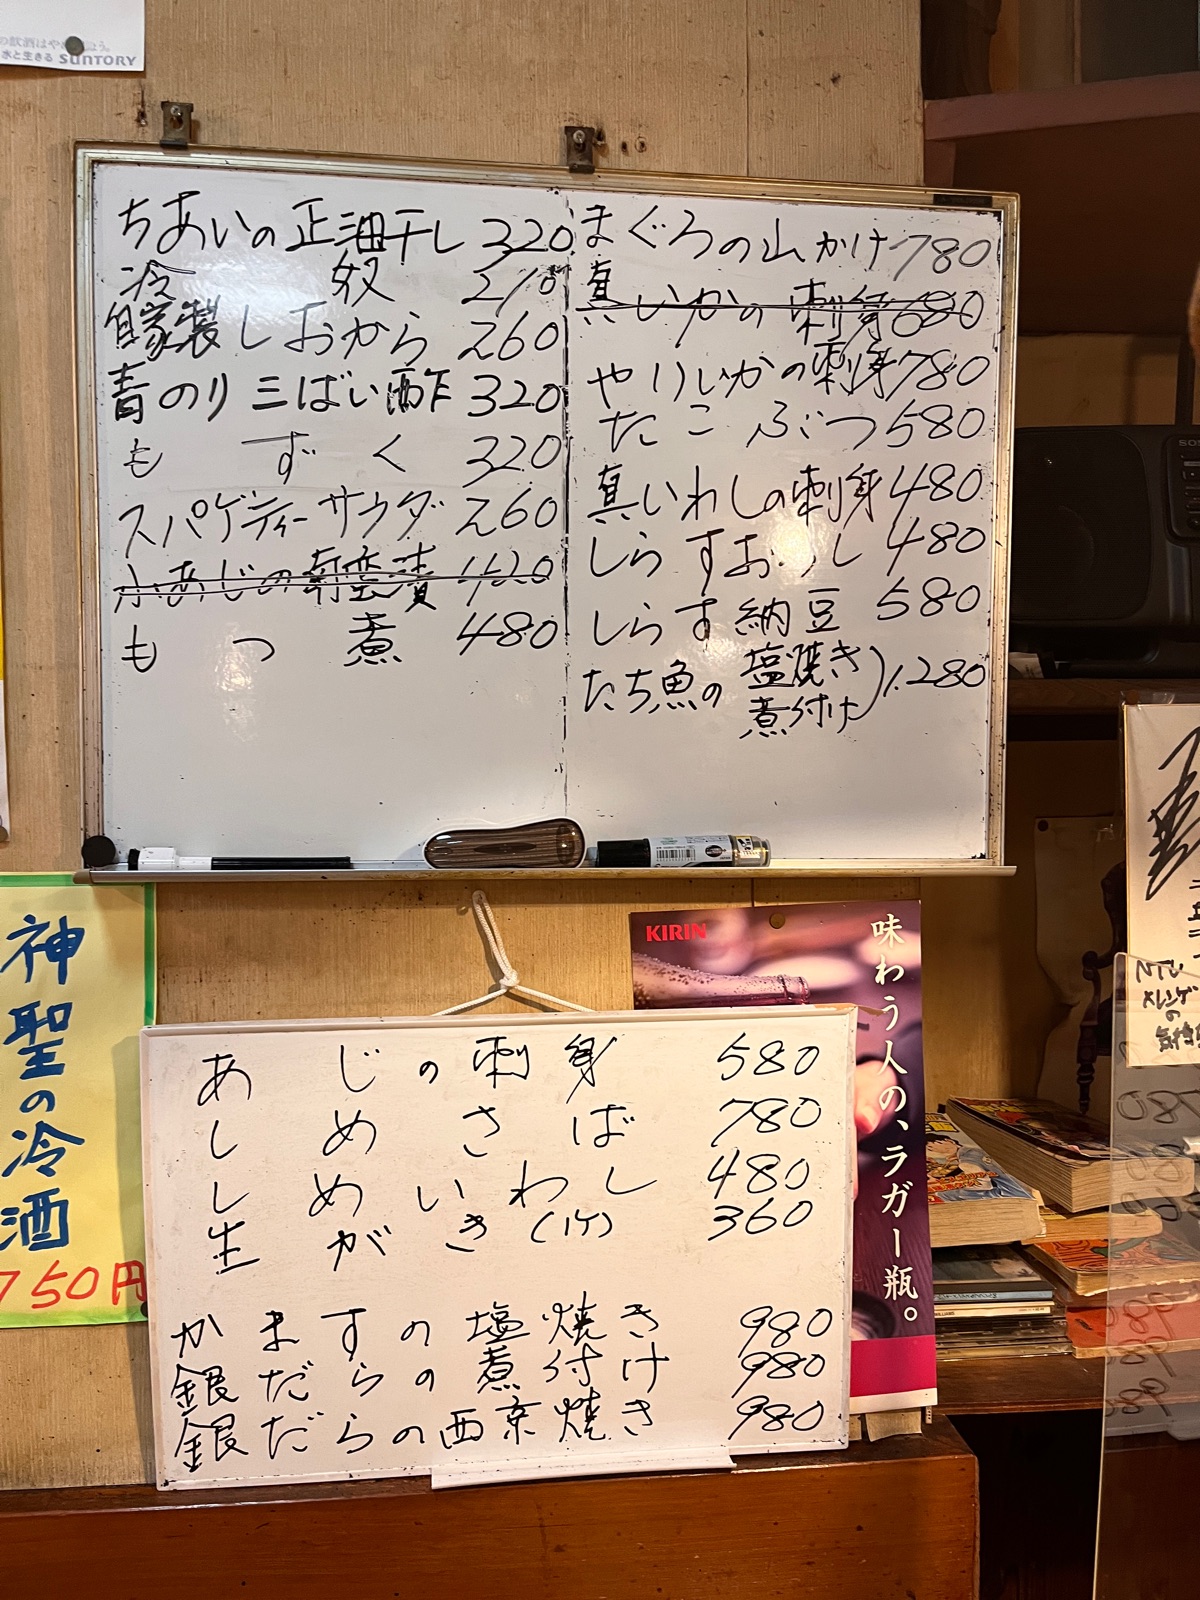 水と生きる SUNTORY
ちあいの正油干し 320
冷奴 210
自家製しおから 260
青のり三ばい酢 320
もずく 320
スパゲティーサウダ 260
小あじの南蛮漬 420
もつ煮 480
まぐろの山かけ 780
真いかの刺身 680
やりいかの刺身 780
たこぶつ 580
真いわしの刺身 480
しらすおろし 480
しらす納豆 580
たち魚の 塩焼き 煮付け) 1.280
神聖の冷酒
750円
KIRIN
味わう人の、ラガー瓶。
あじの刺身 580
しめさば 780
しめいわし 480
生がき(1ケ) 360
かますの塩焼き 980
銀だらの煮付け 980
銀だらの西京焼き 980
SO